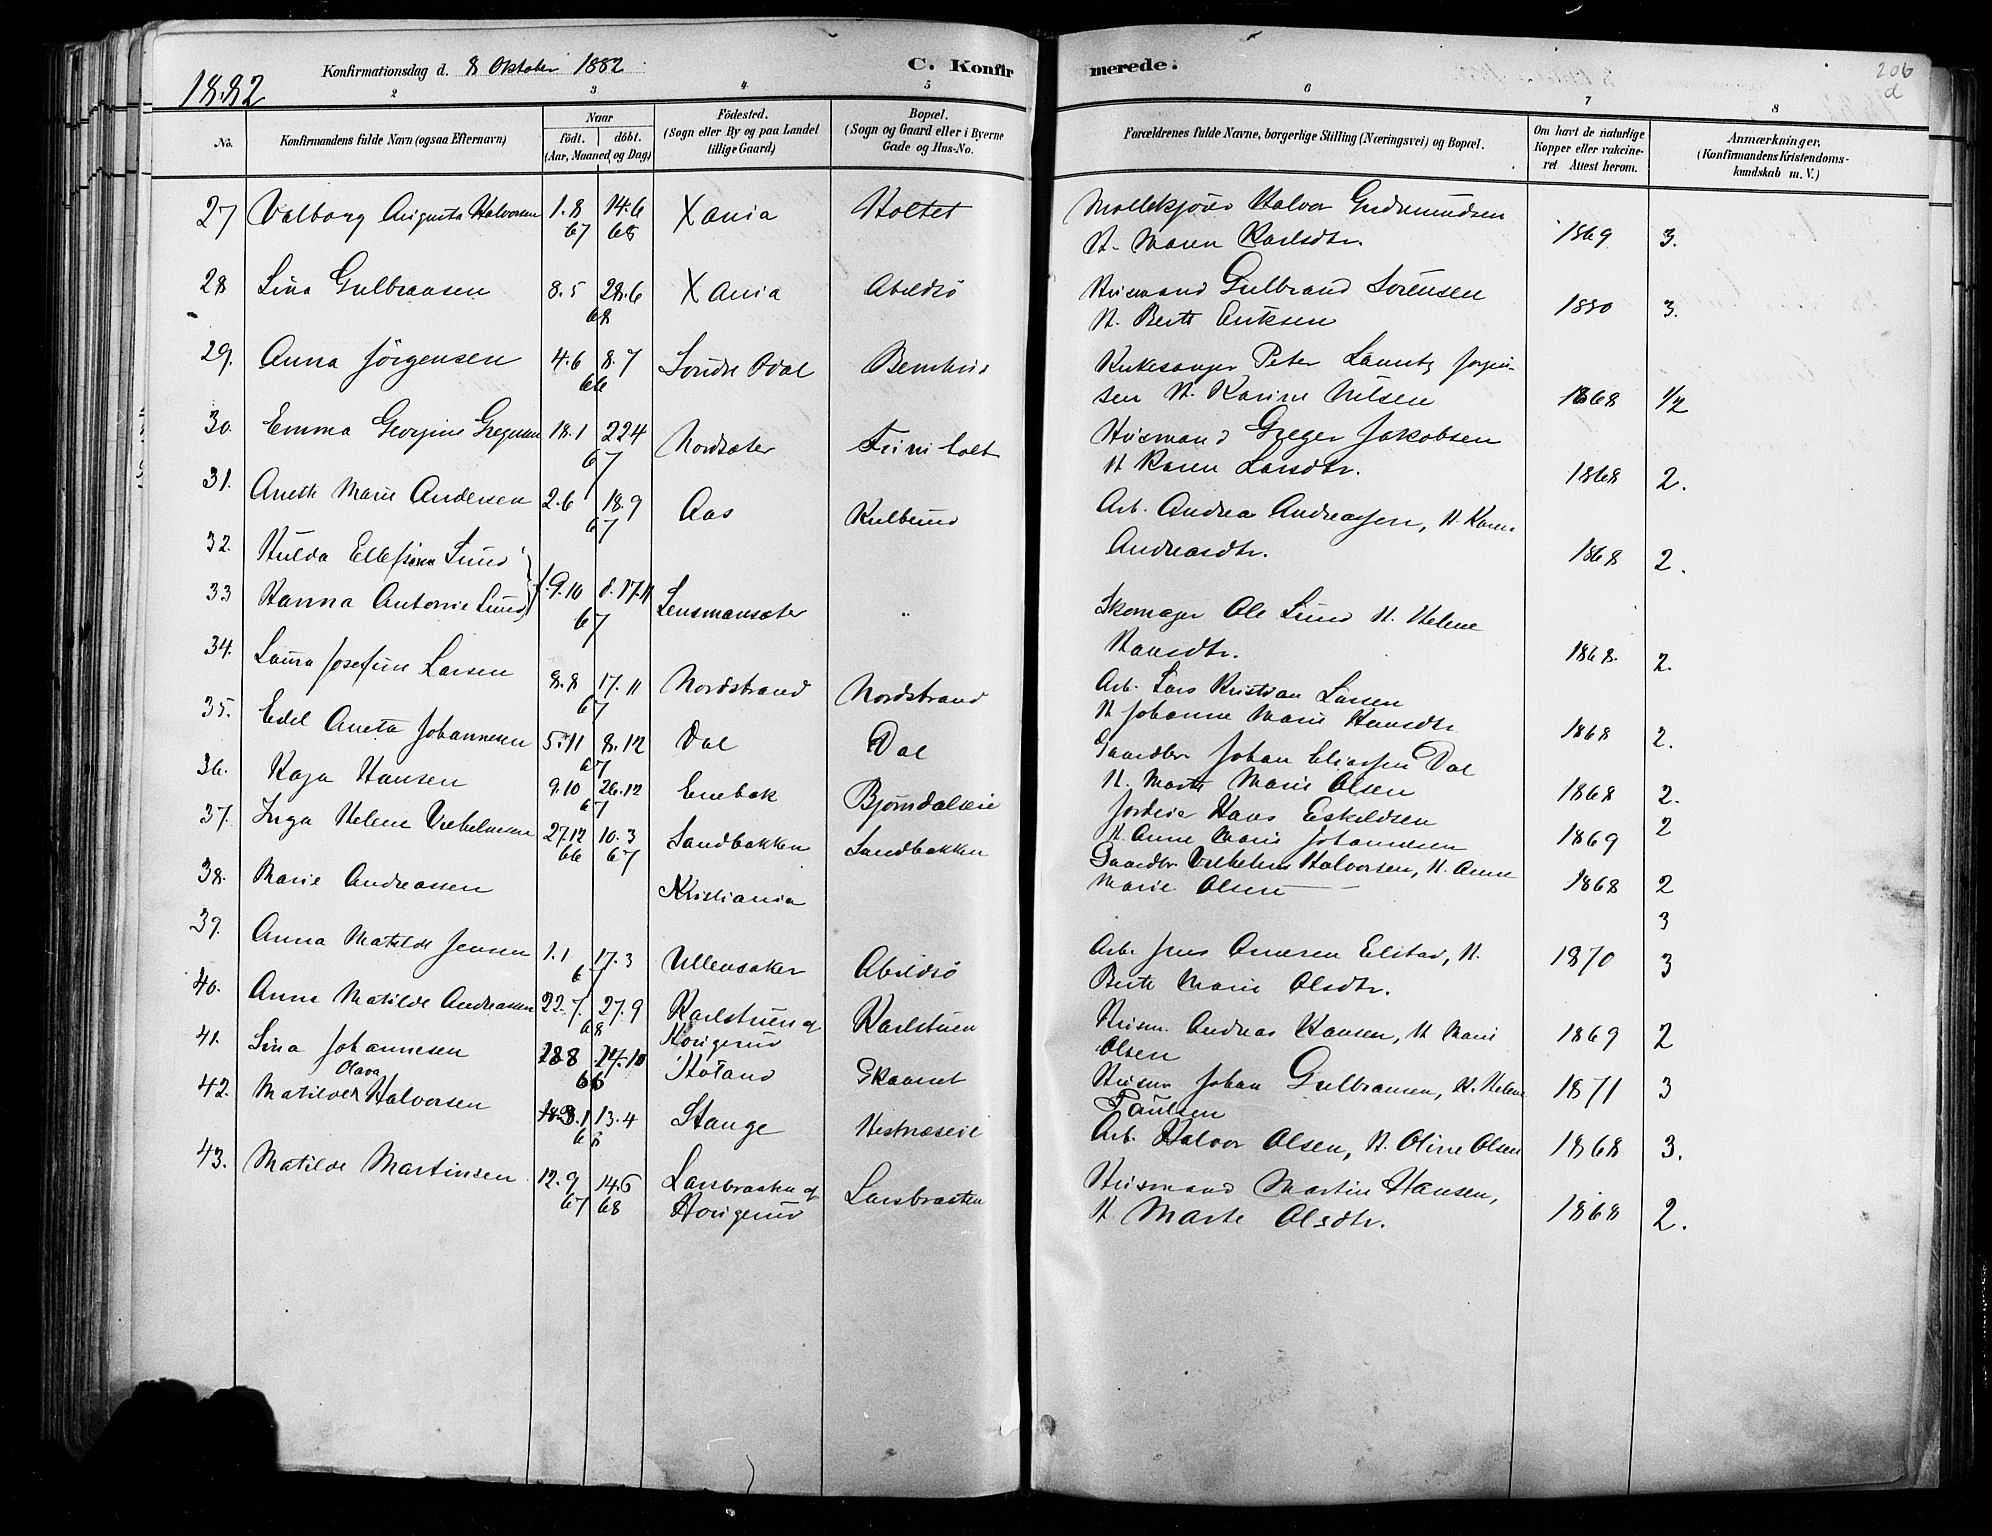 1882
Konfirmationsdag d. 8 Oktober 1882
C. Konfirmerede.
206
d
2 3 4 5 6 7 8
No.
Konfirmandens fulde Navn (ogsaa Efternavn)
Naar
födt. döbt.
(Aar, Maaned og Dag)
Födested.
(Sogn eller By og paa Landet
tillige Gaard)
Bopæl.
(Sogn og Gaard eller i Byerne
Gade og Hus-No.
Forældrenes fulde Navne, borgerlige Stilling (Næringsvei) og Bopæl.
Om havt de naturlige
Kopper eller vakcine-
ret Attest herom.
Anmærkninger,
(Konfirmandens Kristendoms-
kundskab m. V.)
27 Valborg Augusta Halvorsen 1.8 67 14.6 68 Xania Holtet Halvor Gudmundsen
H. Maren Karlsdtr. 1869 3.
28 Lina Gulbransen 8.5 28.6 68 Xania Abildsö Husmand Gulbrand Sörensen
H. Berte Eriksen 1880 3.
29. Anna Jörgensen 4.6 8.7 66 Söndre Odal Kirkesanger Peter Jörgen-
sen H. Karine Nilsen 1868 1/2
30. Emma Georgine 18.1 22.4 67 Nordsæter Husmand Greger Jakobsen
H. Karen Larsdtr. 1868 2.
31. Anette Marie Andersen 2.6 18.9 67 Aas Kulbund Arb. Andrea Andreassen, H. Karen
Andreasdtr. 1868 2.
32. Hulda Lund
33 Hanna Antonie Lund f. 9.10 d. 17.11 67 Lensmansæter " Skomager Ole Lund H. Helene
Hansdtr. 1868. 2.
34. Laura Josefine Larsen 8.8 17.11 67 Nordstrand Nordstrand Arb. Lars Kristian Larsen
H. Johanne Marie Hansdtr 1868 2.
35. Edel Aneta Johannesen 5.11 8.12 67 Dal Dal Gaardbr Johan Eliassen Dal
H. Marte Marie Olsen 1868 2.
36. Kaja Hansen 9.10 26.12 67 Enebak Bjørndalseie Jordeier Hans Eskildsen
H. Anne Marie Johannesen 1869 2
37. Inga Helene Vilhelmsen 27.12 66 10.3 67 Sandbakken Sandbakken Gaardbr. Vilhelm Halvorsen, H. Anne
Marie Olsen 1868 2
38. Marie Andreassen Kristiania 3
39. Anna Matilde Jensen 1.1 17.3 67 Ullensaker Abildsö Arb. Jens Elstad, H.
Berte Marie Olsdtr. 1870 3
40. Anna Matilde Andreassen 22.7. 27.9 68 Karlstuen af Karlstuen Husm. Andreas Hansen, H. Marie
Olsen 1869 2
41. Lina Johannesen 28.8 14.10 66 Höland Husm Johan Gulbransen, H. Helene
Paulsen 1871 3
42. Matilde Olava Halvorsen 8.1 13.4 Stange Hestnæseie Arb. Halvor Olsen, H. Oline Olsen 1868 3.
43. Matilde Martinsen 12.9 67 14.6 68 Larsbraaten af Larsbraaten Husmand Martin Hansen,
H. Marte Olsdtr. 1868 2.